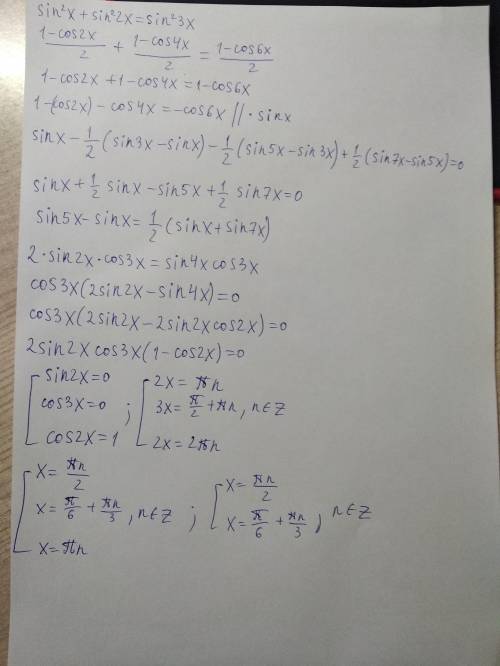 sin²x + sin²2x = sin²3x
(1-cos2x)/2 + (1-cos4x)/2 = (1-cos6x)/2
1-cos2x + 1-cos4x = 1-cos6x
1-cos2x) - cos4x = -cos6x // · sinx
sinx - 1/2 (sin3x - sinx) - 1/2 (sin5x - sin3x) + 1/2 (sin7x - sin5x) = 0
sinx + 1/2 sinx - sin5x + 1/2 sin7x = 0
sin5x - sinx = 1/2 (sinx + sin7x)
2 · sin2x · cos3x = sin4x cos3x
cos3x(2sin2x - sin4x) = 0
cos3x(2sin2x - 2sin2x cos2x) = 0
2sin2x cos3x(1-cos2x) = 0
[ sin2x = 0 ; [ 2x = πn
cos3x = 0 3x = π/2 + πn, n∈Z
cos2x = 1 2x = 2πn
[ x = πn/2 ; [ x = πn/2
x = π/6 + πn/3, n∈Z x = π/6 + πn/3, n∈Z
x = πn